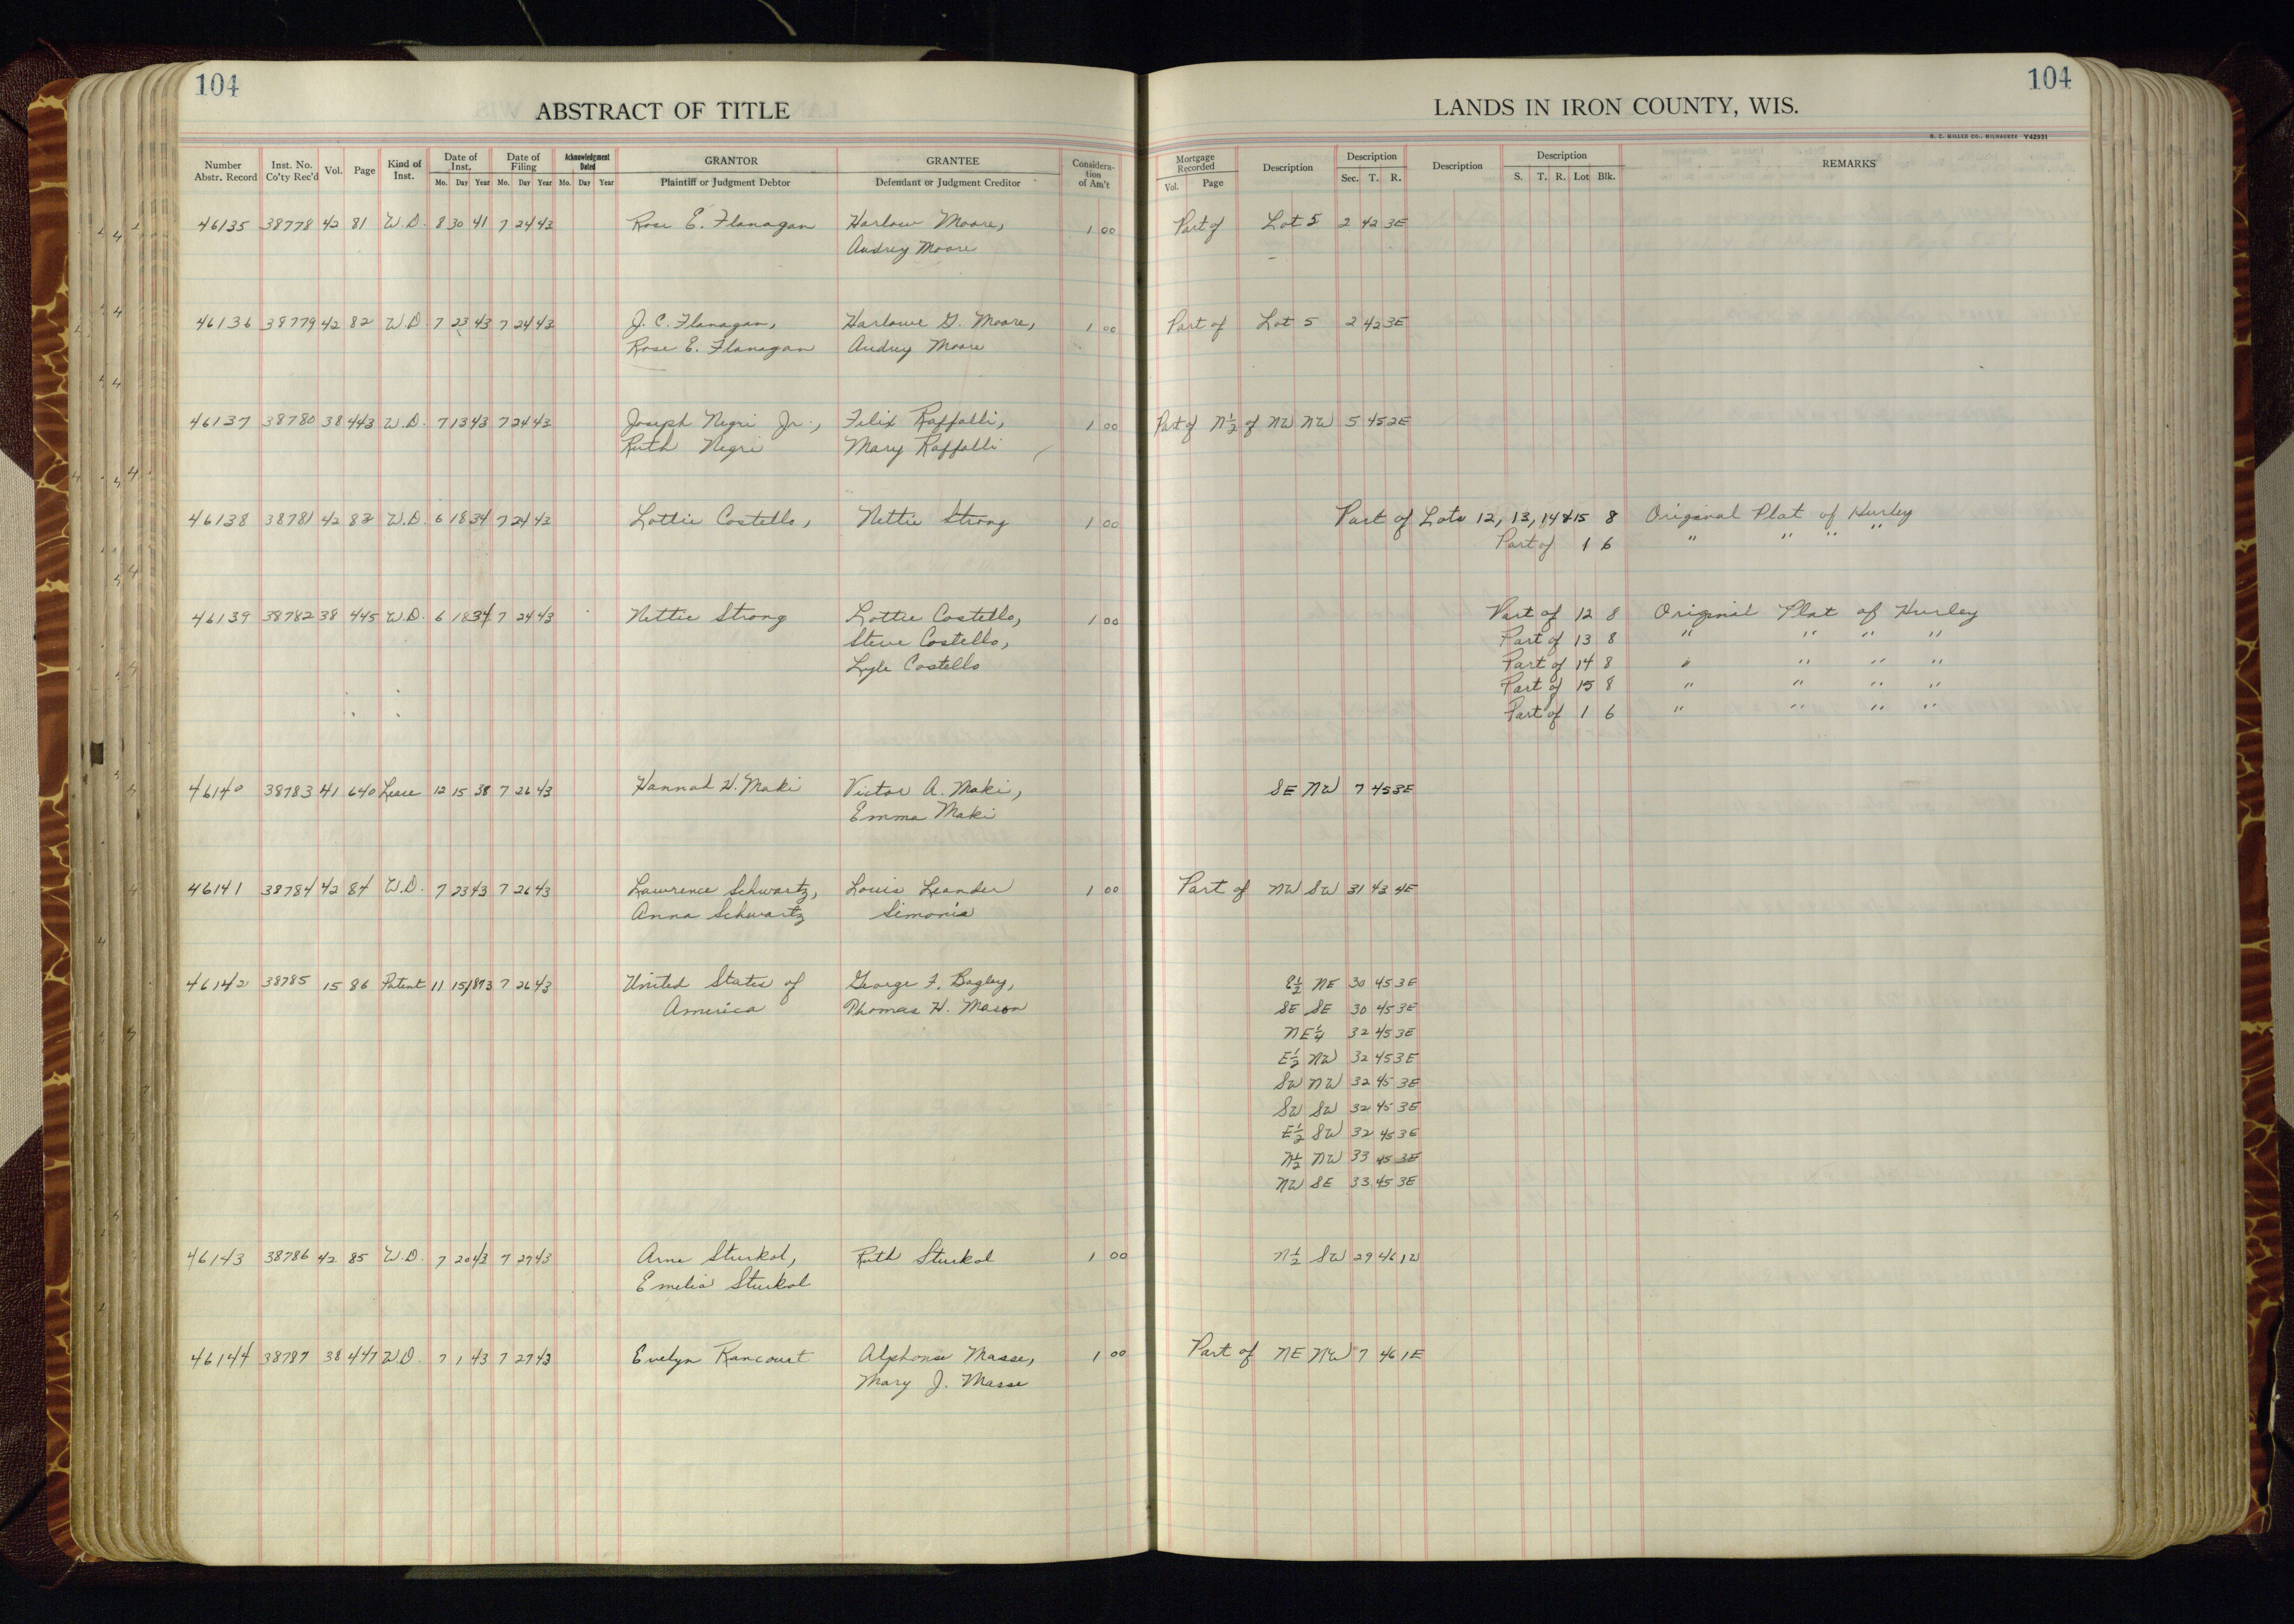 104
104
ABSTRACT OF TITLE
LANDS IN IRON COUNTY, WIS.
H. C. MILLER CO., MILWAUKEE Y42931
Number Abstr. Record | Inst. No. Co'ty Rec'd | Vol. | Page | Kind of Inst. | Date of Inst. Mo. Day Year | Date of Filing Mo. Day Year | Acknowledgment Dated Mo. Day Year | GRANTOR Plaintiff or Judgment Debtor | GRANTEE Defendant or Judgment Creditor | Consideration of Am't | Mortgage Recorded Vol. Page | Description | Description Sec. T. R. | Description | Description S. T. R. Lot Blk. | REMARKS
46135 38778 42 81 W.D. 8 30 41 7 24 43 Rose E. Flanagan Harlow Moore, 1 00 Part of Lot 5 2 42 3E
Audrey Moore
46136 38779 42 82 W.D. 7 23 43 7 24 43 J. C. Flanagan, Harlowe G. Moore, 1 00 Part of Lot 5 2 42 3E
Rose E. Flanagan Audrey Moore
46137 38780 38 443 W.D. 7 13 43 7 24 43 Joseph Negri Jr., Felix Raffalli, 1 00 Part of N½ of NW NW 5 45 2E
Ruth Negri Mary Raffalli
46138 38781 42 83 W.D. 6 18 34 7 24 43 Lottie Costello, Nettie Strong 1 00 Part of Lots 12, 13, 14 & 15 8 Original Plat of Hurley
Part of 1 6 " " "
46139 38782 38 445 W.D. 6 18 34 7 24 43 Nettie Strong Lottie Costello, 1 00 Part of 12 8 Original Plat of Hurley
Steve Costello, Part of 13 8 " " " "
Lyle Costello Part of 14 8 " " " "
Part of 15 8 " " " "
Part of 1 6 " " " "
46140 38783 41 640 Lease 12 15 38 7 26 43 Hannah H. Maki Victor A. Maki, SE NW 7 45 3E
Emma Maki
46141 38784 42 84 W.D. 7 23 43 7 26 43 Lawrence Schwartz, Louis Leander 1 00 Part of NW SW 31 43 4E
Anna Schwartz Simonis
46142 38785 15 86 Patent 11 15 1873 7 26 43 United States of George F. Bagley, E½ NE 30 45 3E
America Thomas H. Mason SE SE 30 45 3E
NE¼ 32 45 3E
E½ NW 32 45 3E
SW NW 32 45 3E
SW SW 32 45 3E
E½ SW 32 45 3E
N½ NW 33 45 3E
NW SE 33 45 3E
46143 38786 42 85 W.D. 7 20 43 7 27 43 Arne Sturkol, Ruth Sturkol 1 00 N½ SW 29 46 1W
Emelia Sturkol
46144 38787 38 447 W.D. 7 1 43 7 27 43 Evelyn Rancourt Alphonse Masse, 1 00 Part of NE NW 7 46 1E
Mary J. Masse